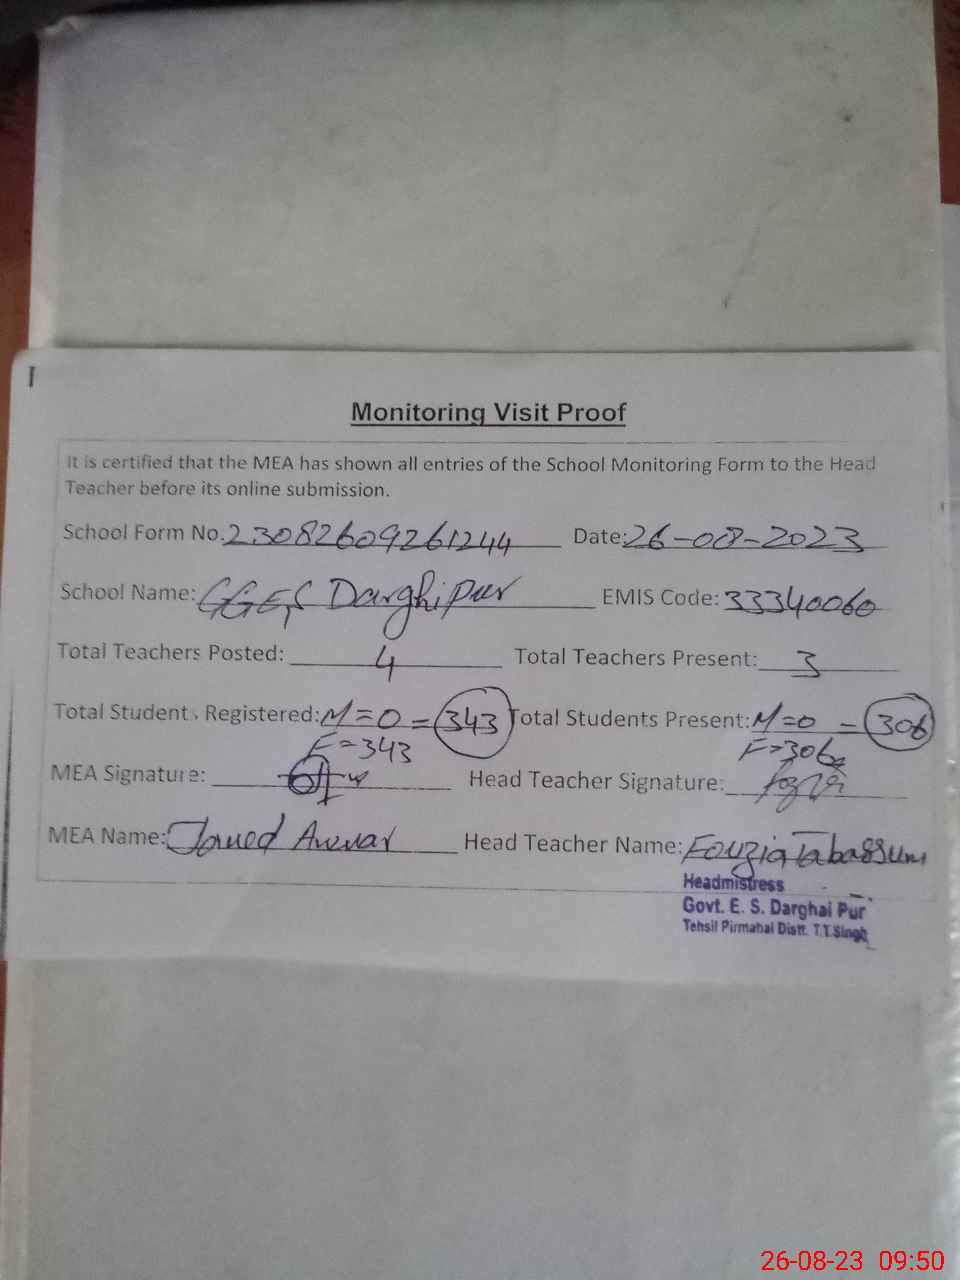 Monitoring Visit Proof
It is certified that the MEA has shown all entries of the School Monitoring Form to the Head
Teacher before its online submission.
School Form No. 23082609261244 Date: 26-08-2023
School Name: GGES Darghipur EMIS Code: 33340060
Total Teachers Posted: 4 Total Teachers Present: 3
Total Student Registered: M=0 = 343 Total Students Present: M=0 = 306
F=343 F=306
MEA Signature: Head Teacher Signature:
MEA Name: Javed Anwar Head Teacher Name: Fouzia Tabassum
Headmistress
Govt. E. S. Darghai Pur
Tehsil Pirmahal Distt. T.T.Singh
26-08-23 09:50